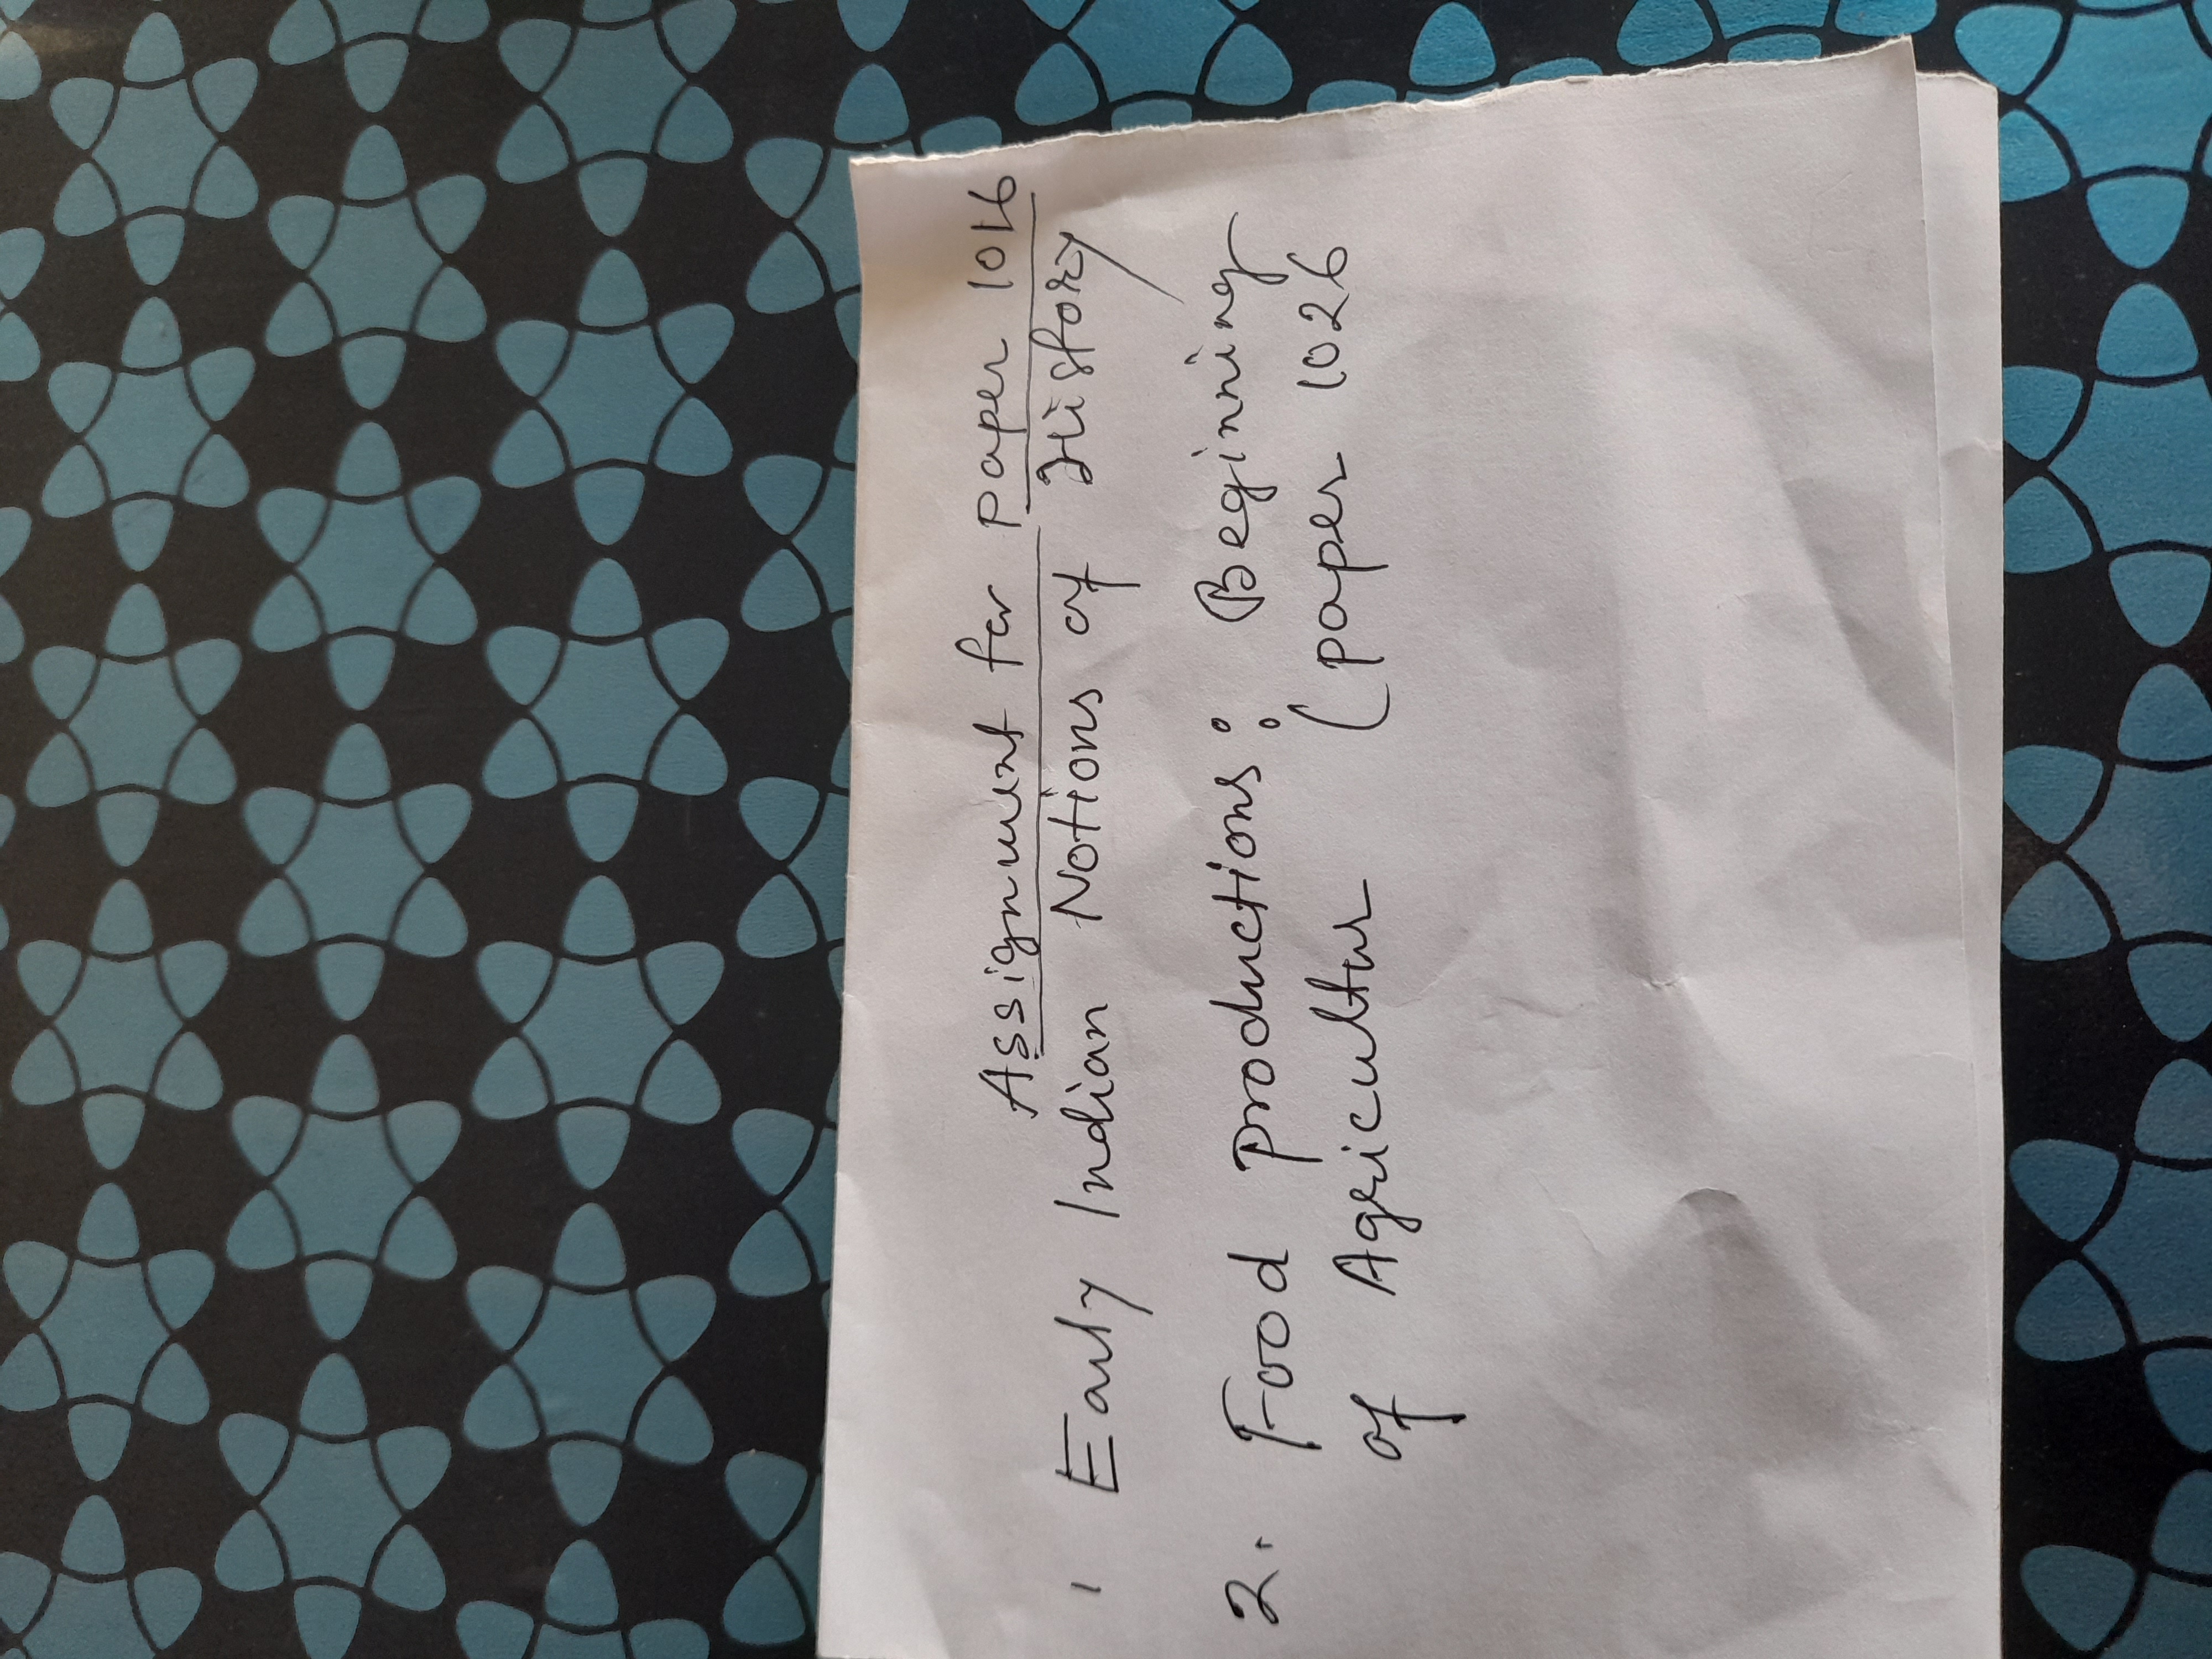 Assignment for paper 1016
1 Early Indian Notions of History
2. Food productions: Beginning
of Agricultur (paper 1026